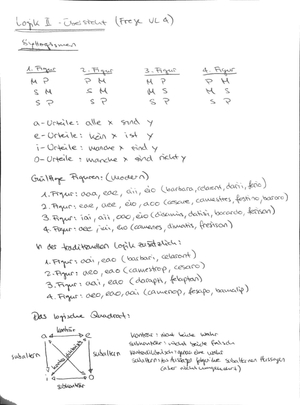 Logik II - Übersicht (Frege VL 4)
Syllogismen
1. Figur 2. Figur 3. Figur 4. Figur
M P P M M P P M
S M S M M S M S
S P S P S P S P
a-Urteile: alle x sind y
e-Urteile: kein x ist y
i-Urteile: manche x sind y
o-Urteile: manche x sind nicht y
Gültige Figuren: (modern)
1. Figur: aaa, eae, aii, eio (barbara, celarent, darii, ferio)
2. Figur: eae, aee, eio, aoo (cesare, camestres, festino, baroco)
3. Figur: iai, aii, oao, eio (disamis, datisi, bocardo, ferison)
4. Figur: aee, iai, eio (camenes, dimatis, fresison)
In der traditionellen Logik zusätzlich:
1. Figur: aai, eao (barbari, celaront)
2. Figur: aeo, eao (camestrop, cesaro)
3. Figur: aai, eao (darapti, felapton)
4. Figur: aeo, eao, aai (camenop, fesapo, bamalip)
Das logische Quadrat:
konträr
a e
subaltern
kontradiktorisch
subaltern
i o
subkonträr
konträr: nicht beide wahr
subkonträr: nicht beide falsch
kontradiktorisch: genau eine wahr
(aber nicht umgekehrt)